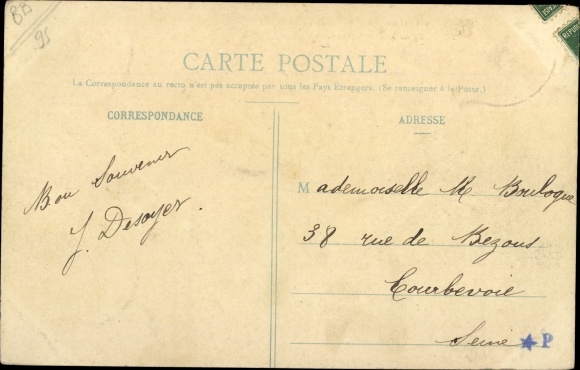 BB
95
CARTE POSTALE
La Correspondance au recto n'est pas acceptée par tous les Pays Etrangers. (Se renseigner à la Poste.)
CORRESPONDANCE
ADRESSE
Bon Souvenir
J. Desoyer.
Mademoiselle M Boulogne
38 rue de Bezons
Courbevoie
Seine
P